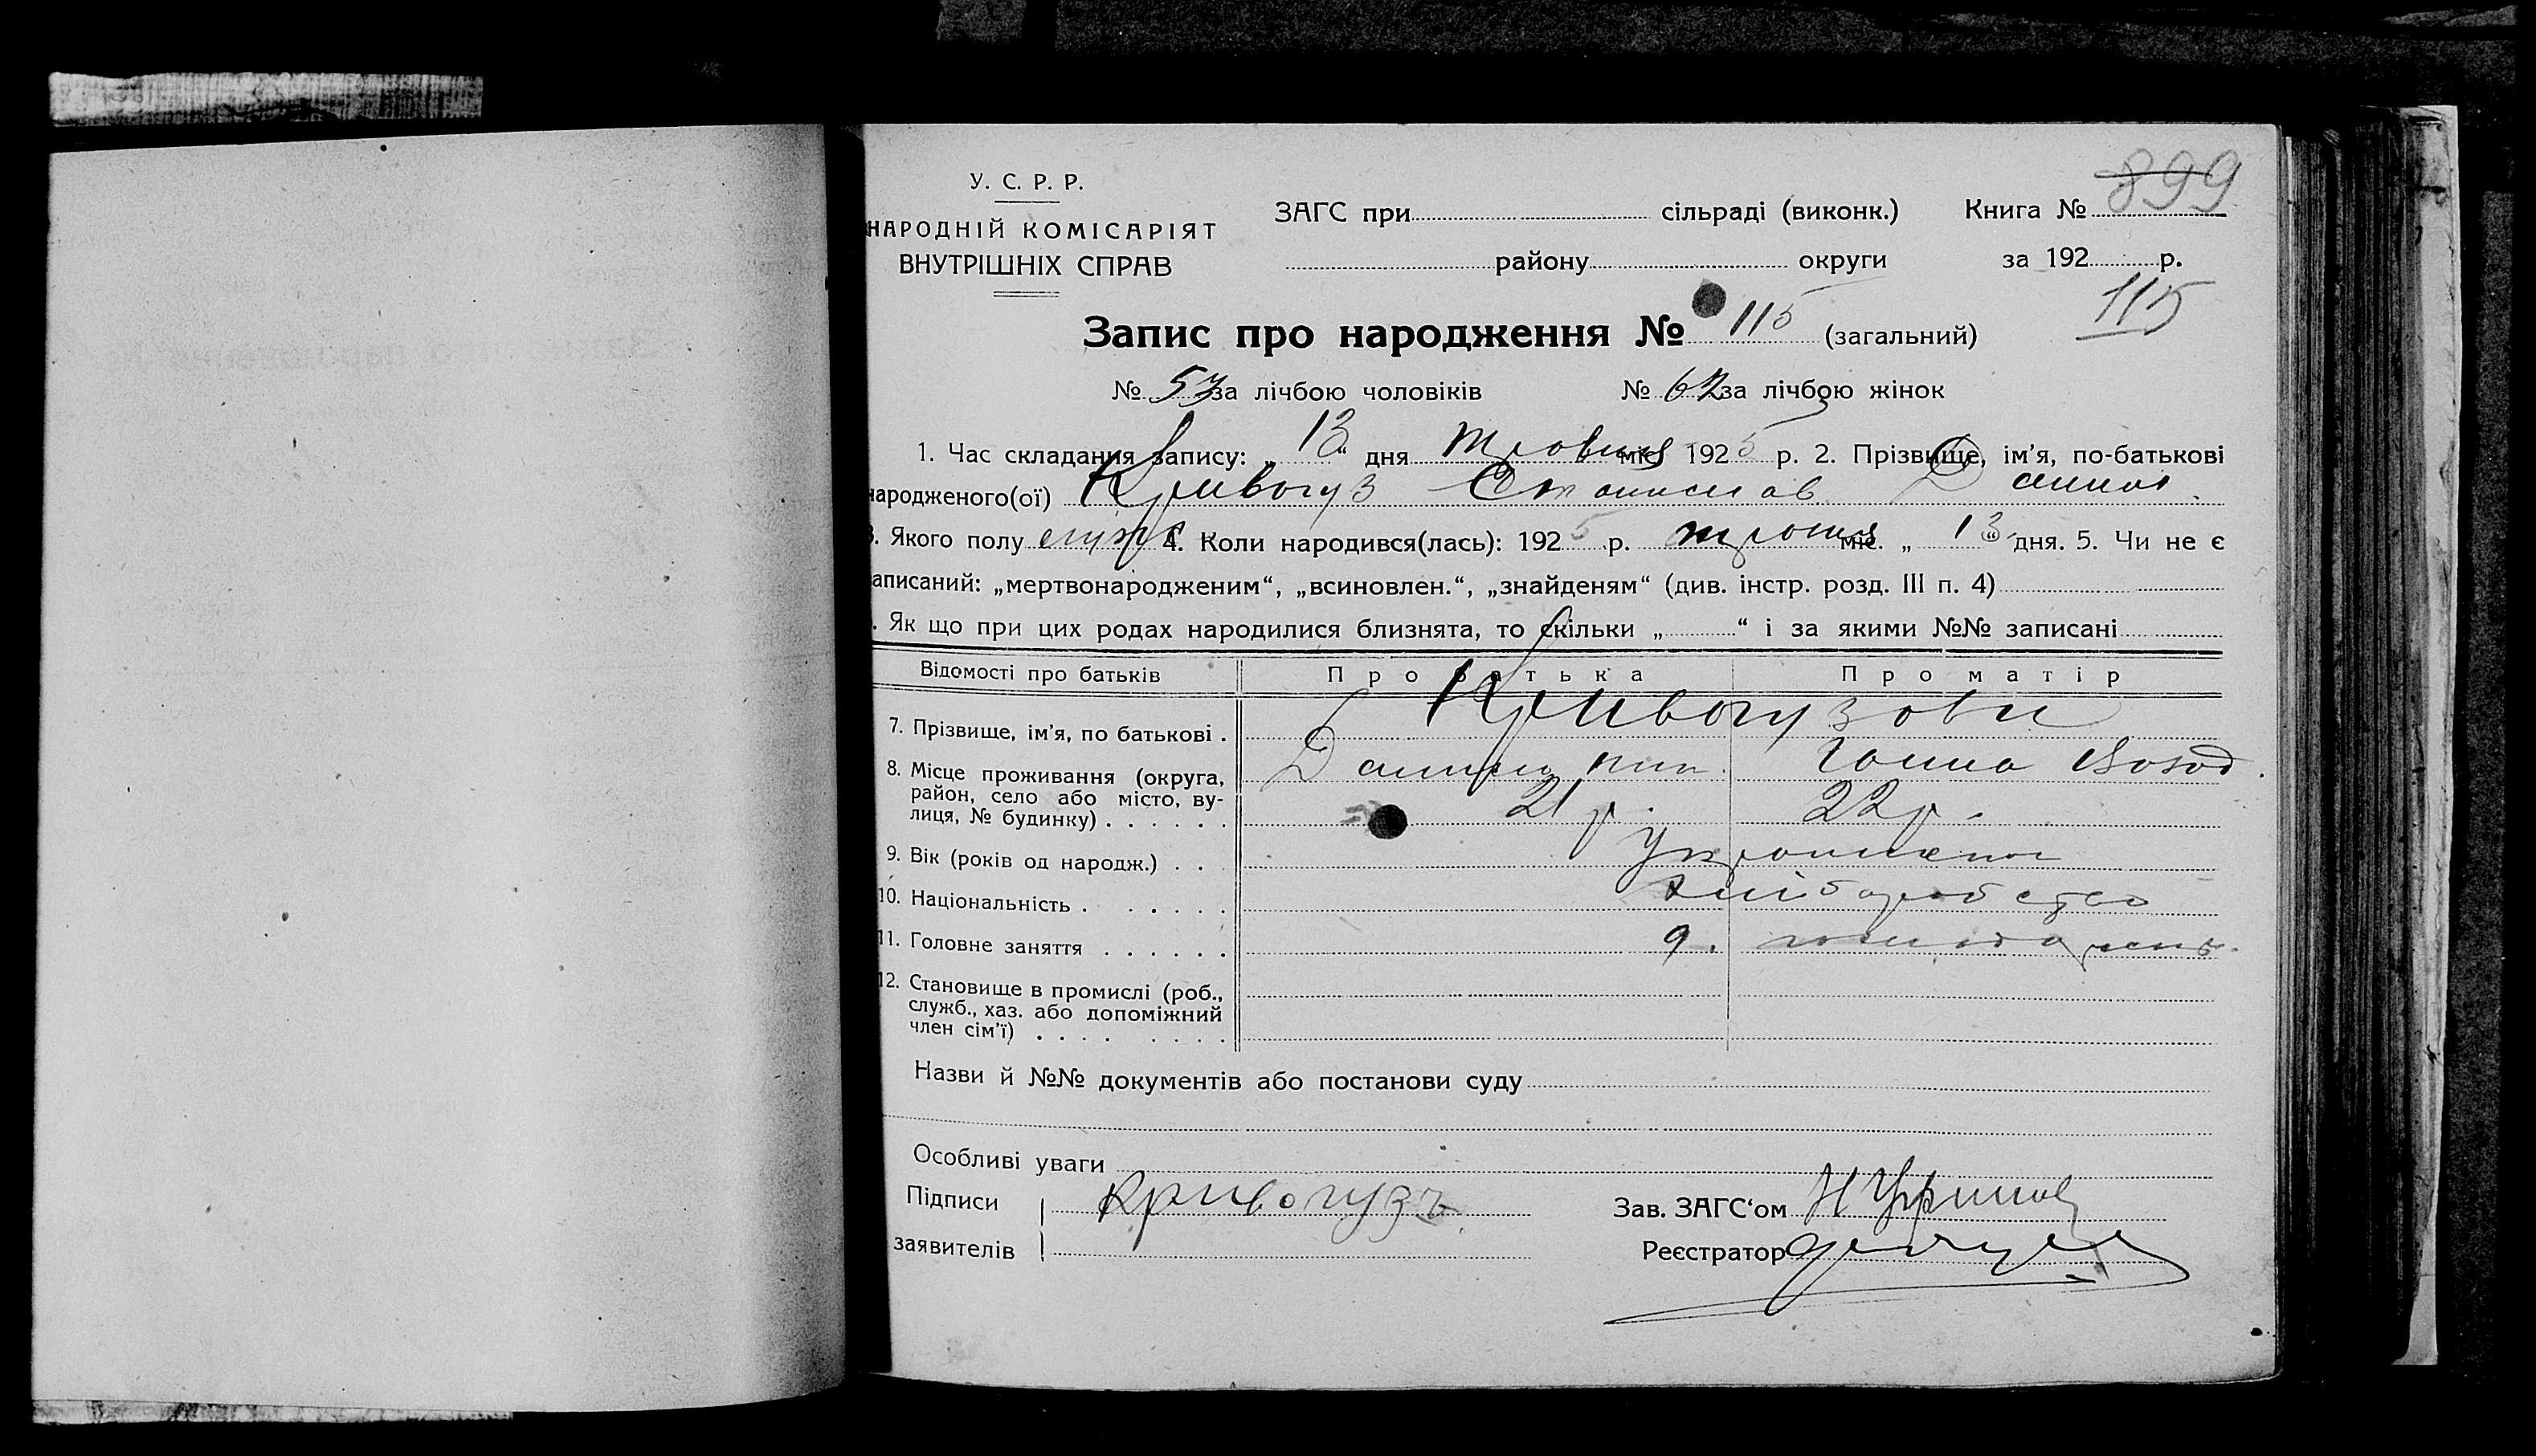 899
У. С. Р. Р.
НАРОДНІЙ КОМІСАРІЯТ
ВНУТРІШНІХ СПРАВ
ЗАГС при сільраді (виконк.) Книга №
району округи за 192 р.
115
Запис про народження № 115 (загальний)
№ 53 за лічбою чоловіків № 62 за лічбою жінок
1. Час складання запису: „ 13 “ дня міс. 1925 р. 2. Прізвище, ім'я, по-батькові
народженого(ої) Кривогуз Станислав
3. Якого полу 4. Коли народився(лась): 1925 р. міс. „ 13 “ дня. 5. Чи не є
аписаний: „мертвонародженим“, „всиновлен.“, „знайденям“ (див. інстр. розд. III п. 4)
. Як що при цих родах народилися близнята, то скільки „ “ і за якими №№ записані
Відомості про батьків Про батька Про матір
7. Прізвище, ім'я, по батькові . Кривогузови
8. Місце проживання (округа, район, село або місто, ву-
лиця, № будинку) . . . . . . 21 р. 22 р.
9. Вік (років од народж.) . . .
10. Національність . . . . . . хліборобство
11. Головне заняття . . . . . . 9.
12. Становище в промислі (роб.,
служб., хаз. або допоміжний
член сім'ї) . . . . . . . .
Назви й №№ документів або постанови суду
Особливі уваги
Підписи Кривогузъ Зав. ЗАГС'ом
заявителів Реєстратор